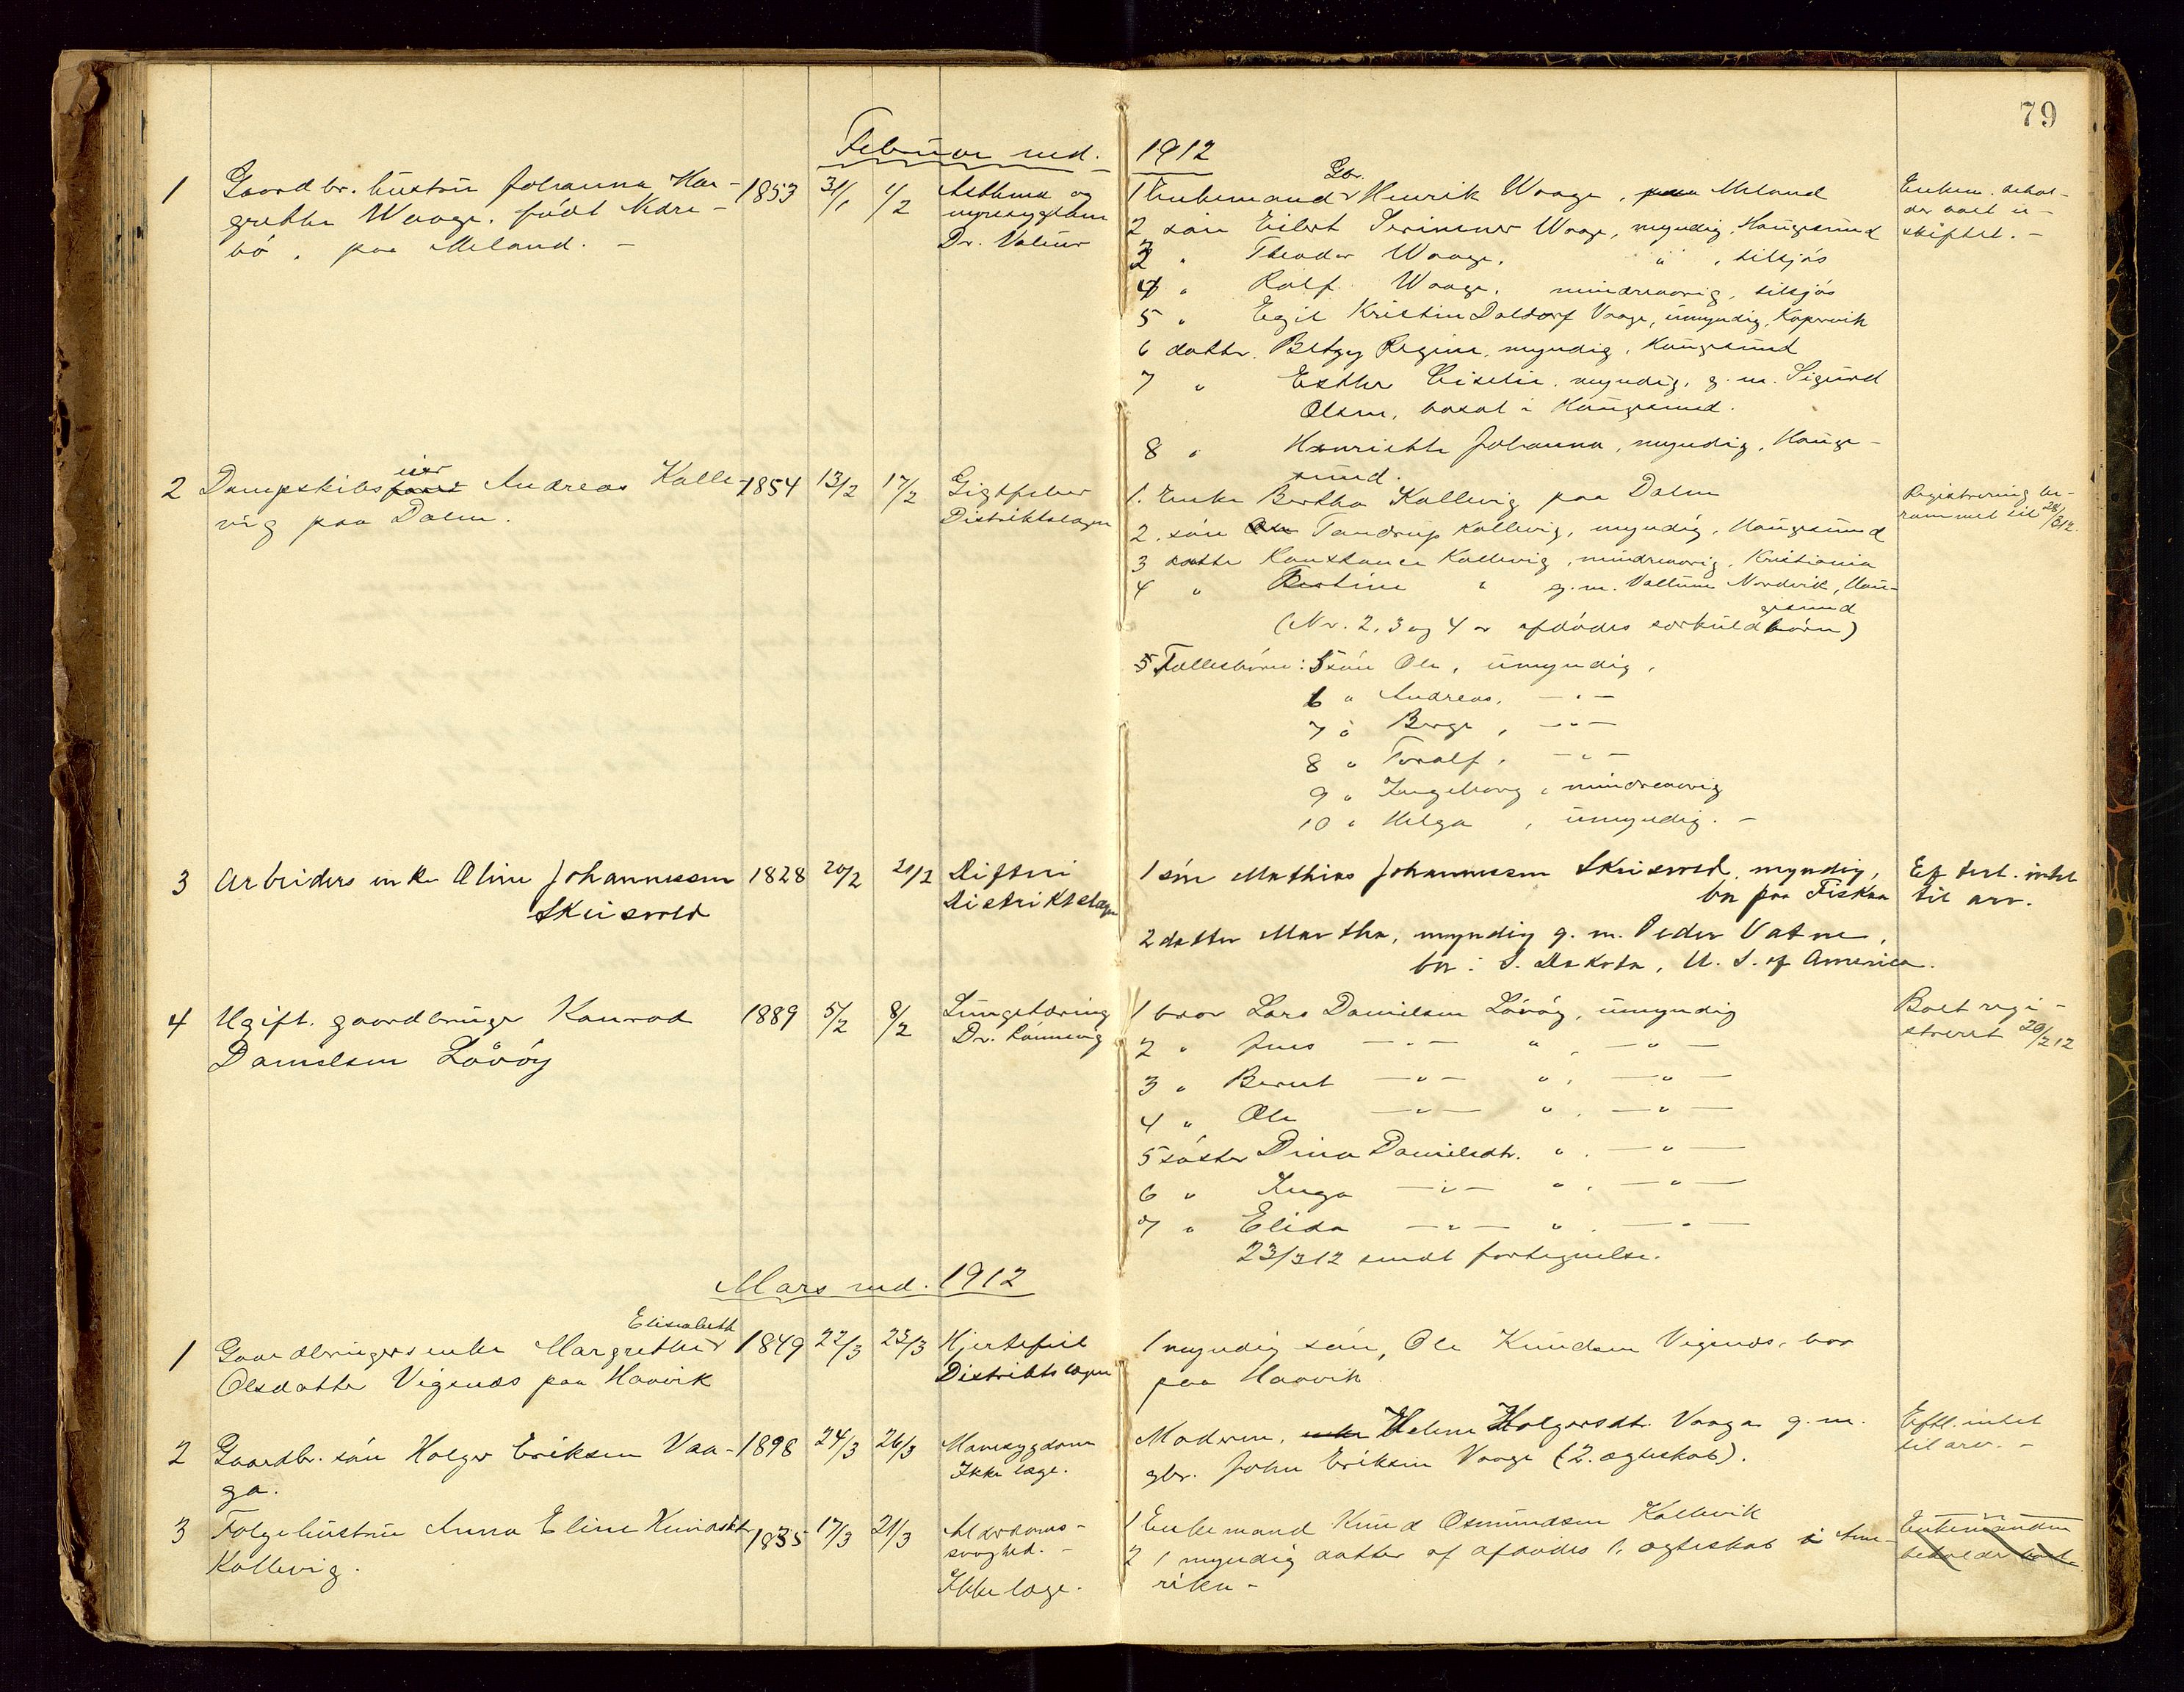 79
Februar md. 1912
1 Gaardbr. hustru Johanna Mar- 1853 31/1 4/2 Asthma og
grethe Waage, født Nedre- nyresygdom
bø, paa Meland. - Dr. Valeur
1 Enkemand Gbr. Henrik Waage, paa Meland
2 søn Eilert Severinsen Waage, myndig, Haugesund
3 " Theodor Waage, " , tilsjøs
4 " Rolf Waage, mindreaarig, tilsjøs
5 " Egil Kristin Daldorf Vaage, umyndig, Kopervik
6 datter Betzy Regine, myndig, Haugesund
7 " Esther Cicelie, myndig, g. m. Sigurd
Olsen, bosat i Haugesund.
8 " Henriette Johanna, myndig, Hauge-
sund.
Enkem. behol-
der boet u-
skiftet. -
2 Dampskibseier Andreas Kalle- 1854 13/2 17/2 Gigtfeber
vig paa Dalen. Distriktslægen
1. Enke Bertha Kallevig paa Dalen
2. søn Tandrup Kallevig, myndig, Haugesund
3 datter Konstance Kallevig, mindreaarig, Kristiania
4 " Bertine " g. m. Valtum Nordvik, Hau-
gesund
(Nr. 2, 3 og 4 er afdødes særkuldbørn)
5 Fællesbørn: 5 søn Ole, umyndig,
6 " Andreas, - " -
7 " Berge, - " -
8 " Toralf, - " -
9 " Ingeborg, mindreaarig
10 " Helga, umyndig. -
Registrering be-
rammet til 28/3 12.
3 Arbeiders enke Oline Johannessen 1828 20/2 21/2 Difteri
Skeisvold Distriktslægen
1 søn Mathias Johannessen Skeisvold, myndig,
bor paa Fiskaa
2 datter Martha, myndig g. m. Peder Vatne,
bor i S. Dakota, U. S. of America.
Eft. intet
til arv.
4 Ugift. gaardbruger Konrad 1889 5/2 8/2 Lungetæring
Danielsen Løvøy Dr. Rønnevig
1 bror Lars Danielsen Løvøy, umyndig
2 " Jens - " - " , - " -
3 " Bernt - " - " , - " -
4 " Ole - " - " , - " -
5 søster Dina Danielsdt. " , - " -
6 " Inga - " - " , - " -
7 " Elida - " - " , - " -
23/3 12 sendt fortegnelse.
Boet regi-
streret 20/2 12
Mars md. 1912
1 Gaardbrugers enke Margrethe Elisabeth 1849 22/3 23/3 Hjertefeil
Olsdatter Vigenes paa Haavik Distriktslægen
1 myndig søn, Ole Knudsen Vigenes, bor
paa Haavik
2 Gaardbr. søn Holger Eriksen Vaa- 1898 24/3 26/3 Mavesygdom
ga. Ikke læge.
Moderen, Helene Holgersdt. Vaaga g. m.
gbr. John Eriksen Vaage (2. ægteskab).
Eftl. intet
til arv. -
3 Følgehustru Anna Eline Knudsdt. 1835 17/3 21/3 Alderdoms-
Kallevig. svaghed. -
Ikke læge.
1 Enkemand Knud Osmundsen Kallevik
2 1 myndig datter af afdødes 1. ægteskab i Ame-
rika -
Enkemanden
beholder boet